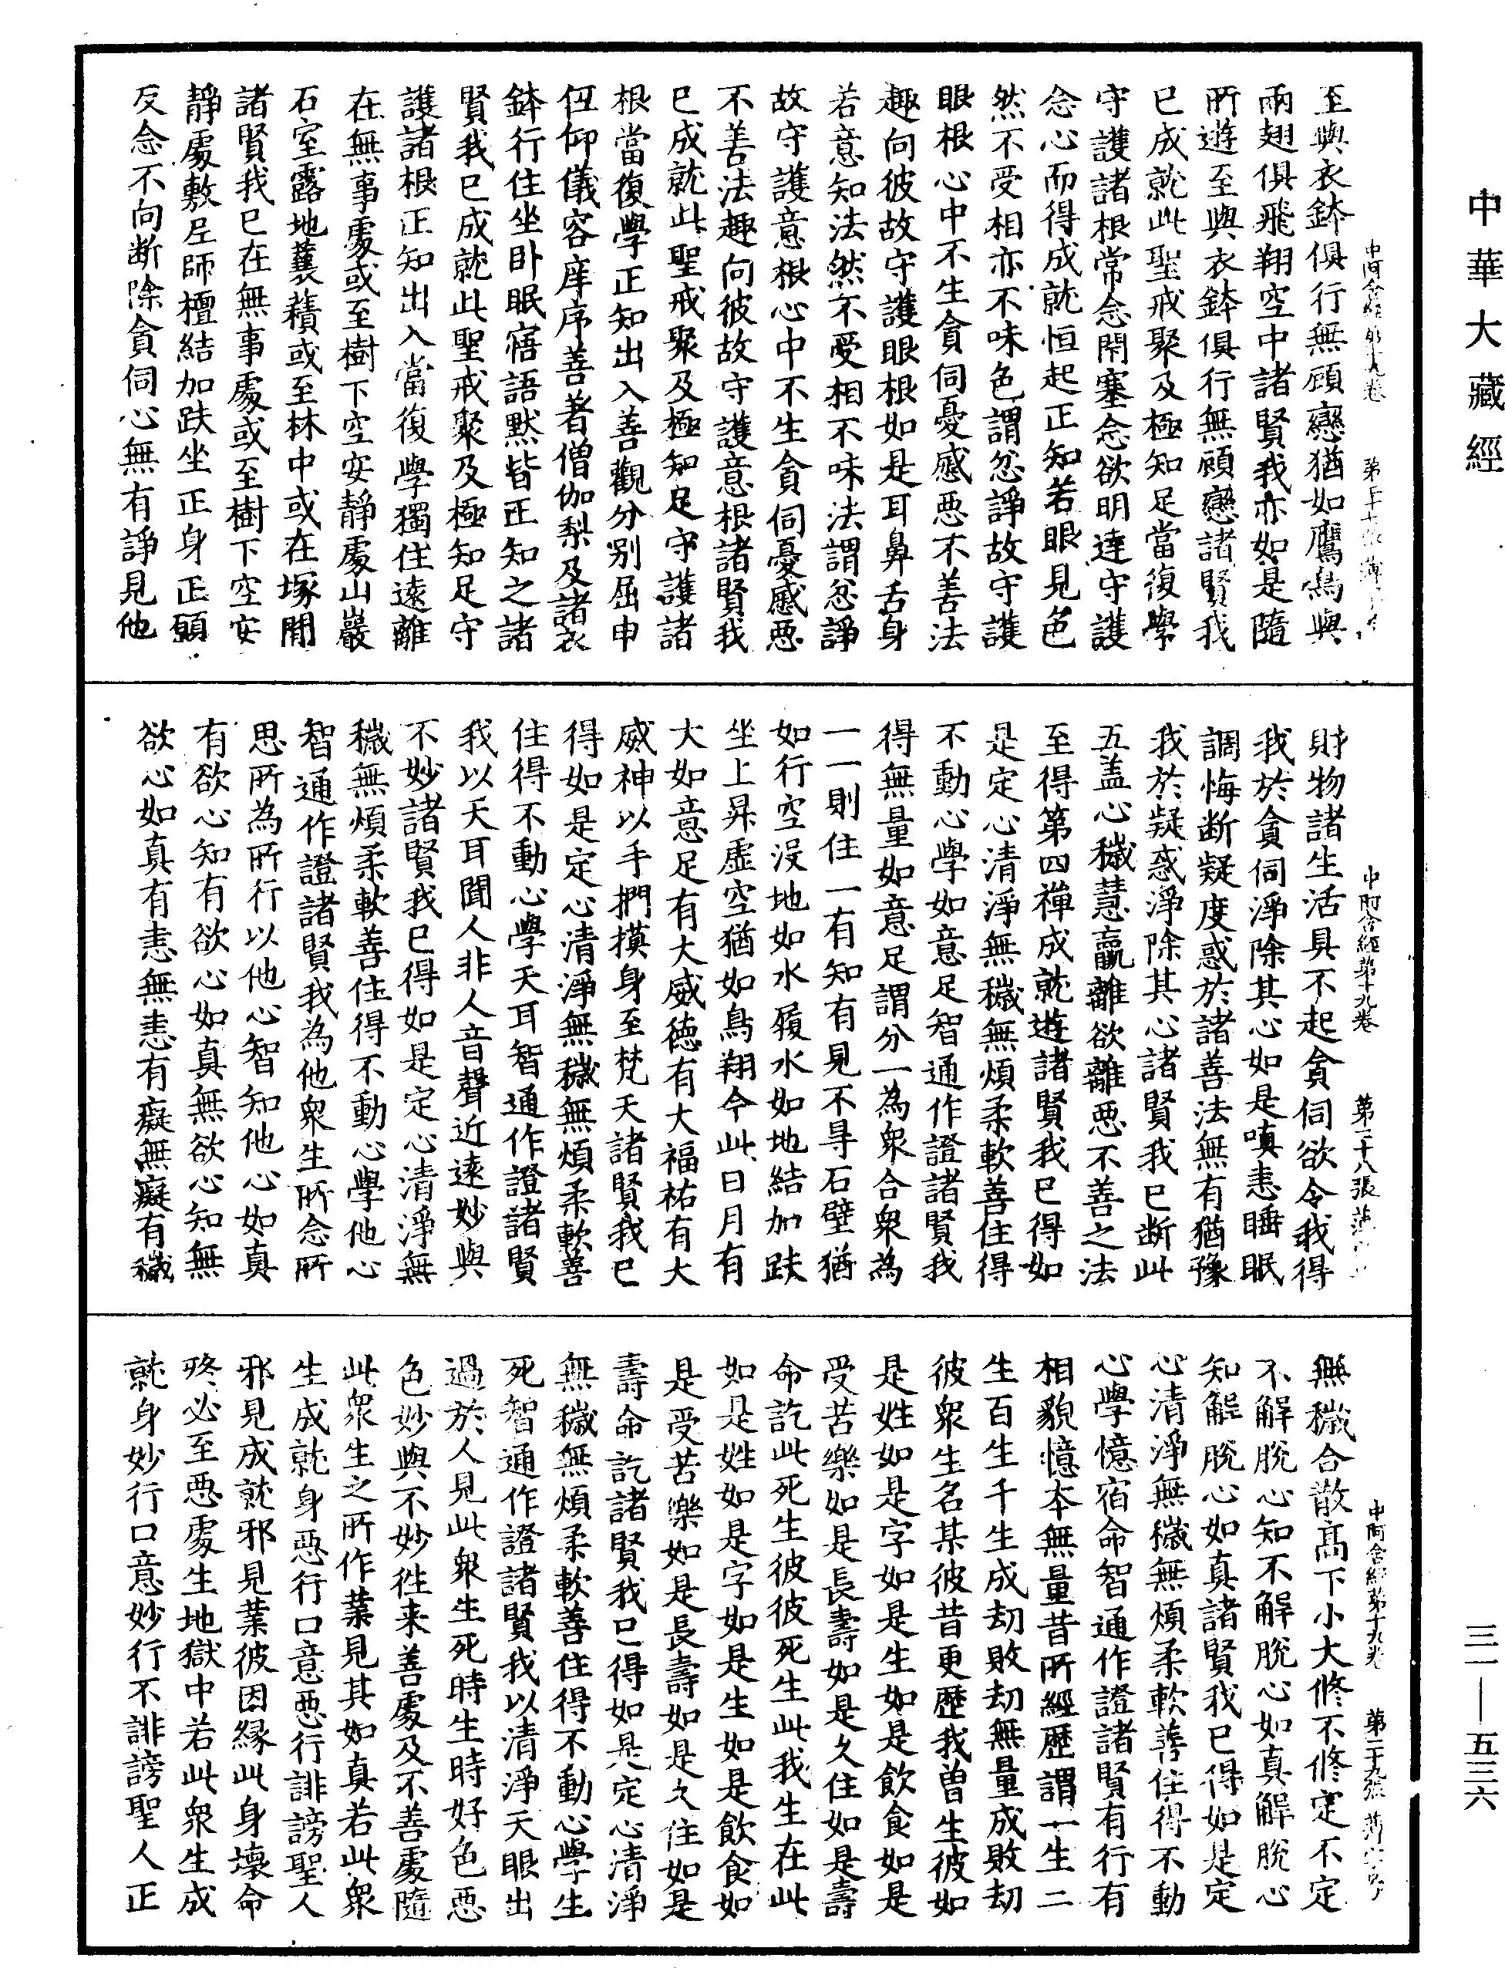 中華大藏經
至與衣鉢俱行無顧戀猶如鷹鳥與
兩翅俱飛翔空中諸賢我亦如是隨
所遊至與衣鉢俱行無顧戀諸賢我
已成就此聖戒聚及極知足當復學
守護諸根常念閉塞念欲明達守護
念心而得成就恒起正知若眼見色
然不受相亦不味色謂忿諍故守護
眼根心中不生貪伺憂慼惡不善法
趣向彼故守護眼根如是耳鼻舌身
若意知法然不受相不味法謂忿諍
故守護意根心中不生貪伺憂慼惡
不善法趣向彼故守護意根諸賢我
已成就此聖戒聚及極知足守護諸
根當復學正知出入善觀分別屈申
伍仰儀容庠序善著僧伽梨及諸衣
鉢行住坐卧眠寤語默皆正知之諸
賢我已成就此聖戒聚及極知足守
護諸根正知出入當復學獨住遠離
在無事處或至樹下空安靜處山巖
石室露地蘘積或至林中或在塚間
諸賢我已在無事處或至樹下空安
靜處敷尼師檀結加趺坐正身正願
反念不向断除貪伺心無有諍見他
中阿含經第十九卷 第二十八張
財物諸生活具不起貪伺欲令我得
我於貪伺淨除其心如是嗔恚睡眠
調悔断疑度惑於諸善法無有猶豫
我於疑惑淨除其心諸賢我已断此
五盖心穢慧羸離欲離惡不善之法
至得第四禪成就遊諸賢我已得如
是定心清淨無穢無煩柔軟善住得
不動心學如意足智通作證諸賢我
得無量如意足謂分一為衆合衆為
一一則住一有知有見不㝵石壁猶
如行空没地如水履水如地結加趺
坐上昇虛空猶如鳥翔今此日月有
大如意足有大威德有大福祐有大
威神以手捫摸身至梵天諸賢我已
得如是定心清淨無穢無煩柔軟善
住得不動心學天耳智通作證諸賢
我以天耳聞人非人音聲近遠妙與
不妙諸賢我已得如是定心清淨無
穢無煩柔軟善住得不動心學他心
智通作證諸賢我為他衆生所念所
思所為所行以他心智知他心如真
有欲心知有欲心如真無欲心知無
欲心如真有恚無恚有癡無癡有穢
中阿含經第十九卷 第二十九張
無穢合散高下小大修不修定不定
不解脫心知不解脫心如真解脫心
知解脫心如真諸賢我已得如是定
心清淨無穢無煩柔軟善住得不動
心學憶宿命智通作證諸賢有行有
相貌憶本無量昔所經歷謂一生二
生百生千生成劫敗劫無量成敗劫
彼衆生名某彼昔更歷我曽生彼如
是姓如是字如是生如是飲食如是
受苦樂如是長壽如是久住如是壽
命訖此死生彼彼死生此我生在此
如是姓如是字如是生如是飲食如
是受苦樂如是長壽如是久住如是
壽命訖諸賢我已得如是定心清淨
無穢無煩柔軟善住得不動心學生
死智通作證諸賢我以清淨天眼出
過於人見此衆生死時生時好色惡
色妙與不妙往来善處及不善處隨
此衆生之所作業見其如真若此衆
生成就身惡行口意惡行誹謗聖人
邪見成就邪見業彼因緣此身壞命
終必至惡處生地獄中若此衆生成
就身妙行口意妙行不誹謗聖人正
三一—五三六